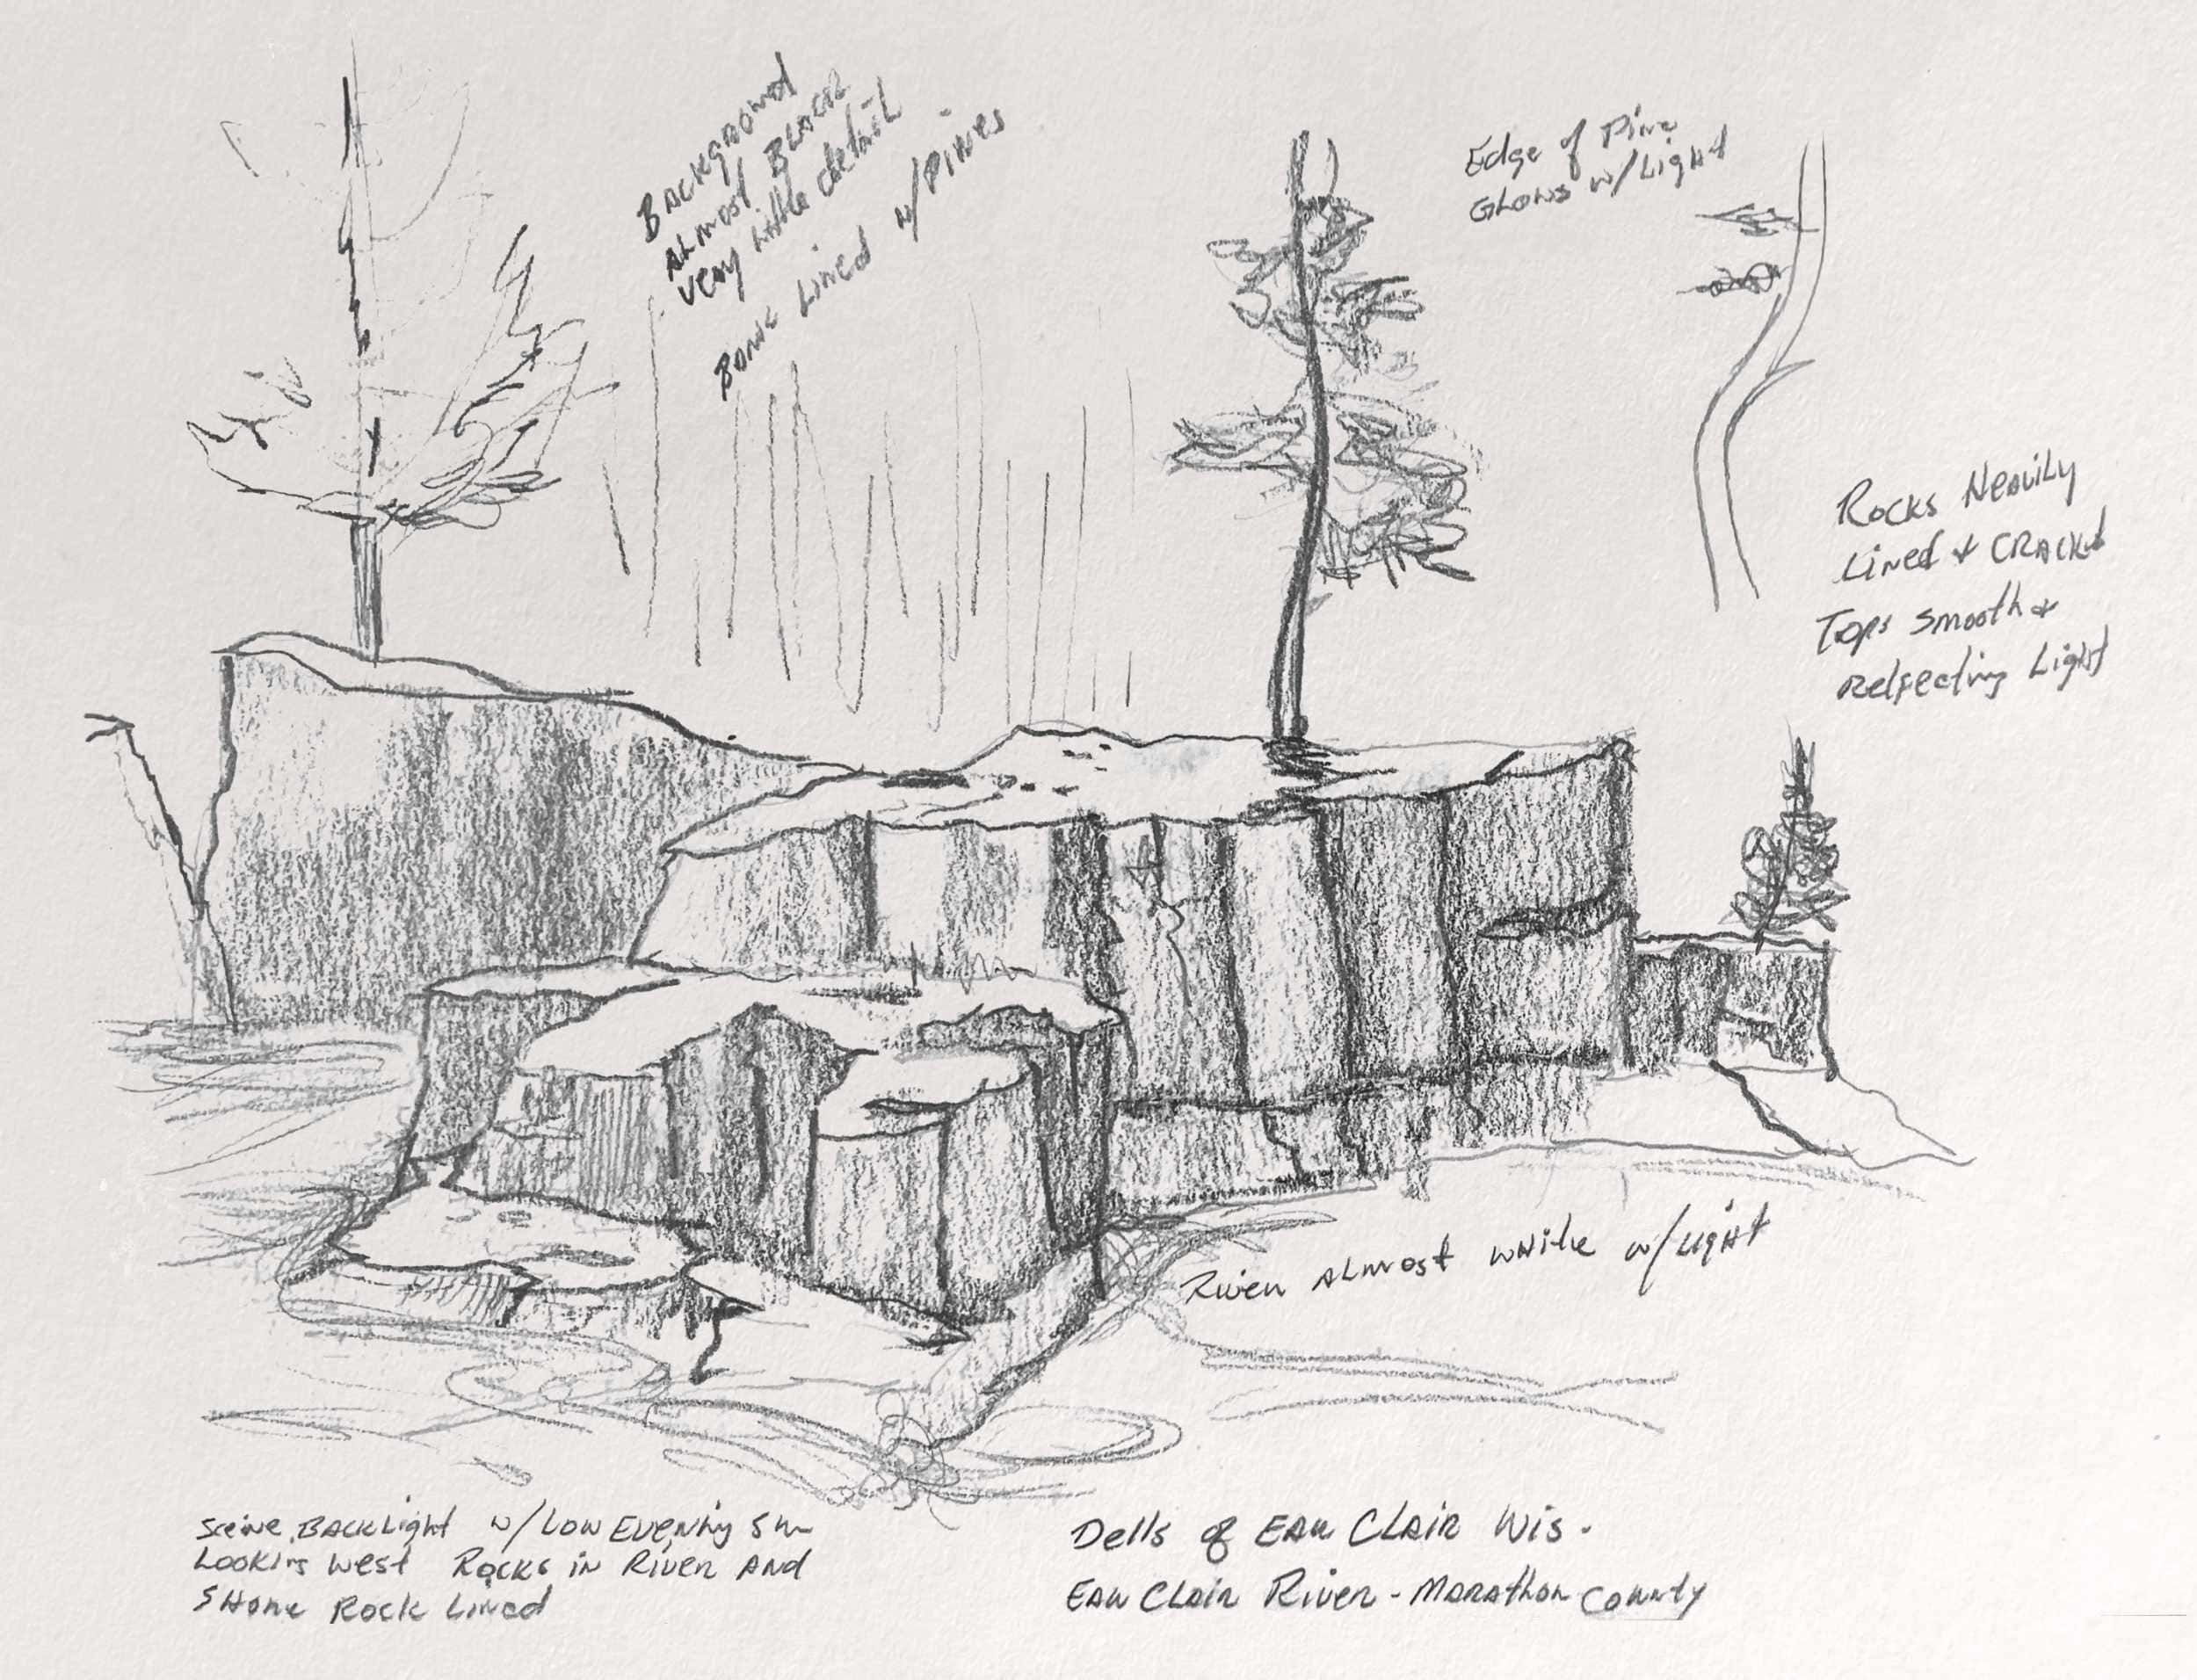 Background
Almost Black
Very little detail
Bank Lined w/Pines
Edge of Pine
Glows w/Light
Rocks Heavily
Lined & Cracked
Tops smooth &
Relfecting Light
River Almost white w/Light
Sceine BackLight w/Low Evening Sun
Looking West Rocks in River And
Shore Rock Lined
Dells of Eau Clair Wis.
Eau Clair River - Marathon County